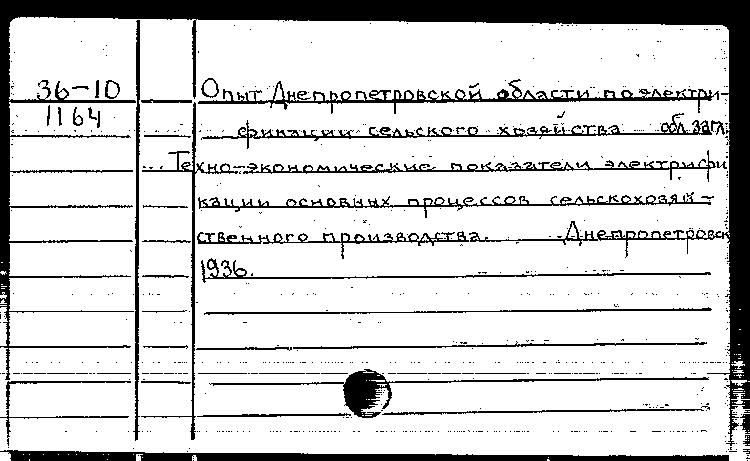 36-10 Опыт Днепропетровской области по электри-
1164 фикации сельского хозяйства обл. загл.
... Техно-экономические показатели электрифи
кации основных процессов сельскохозяй-
ственного производства. Днепропетровск
1936.